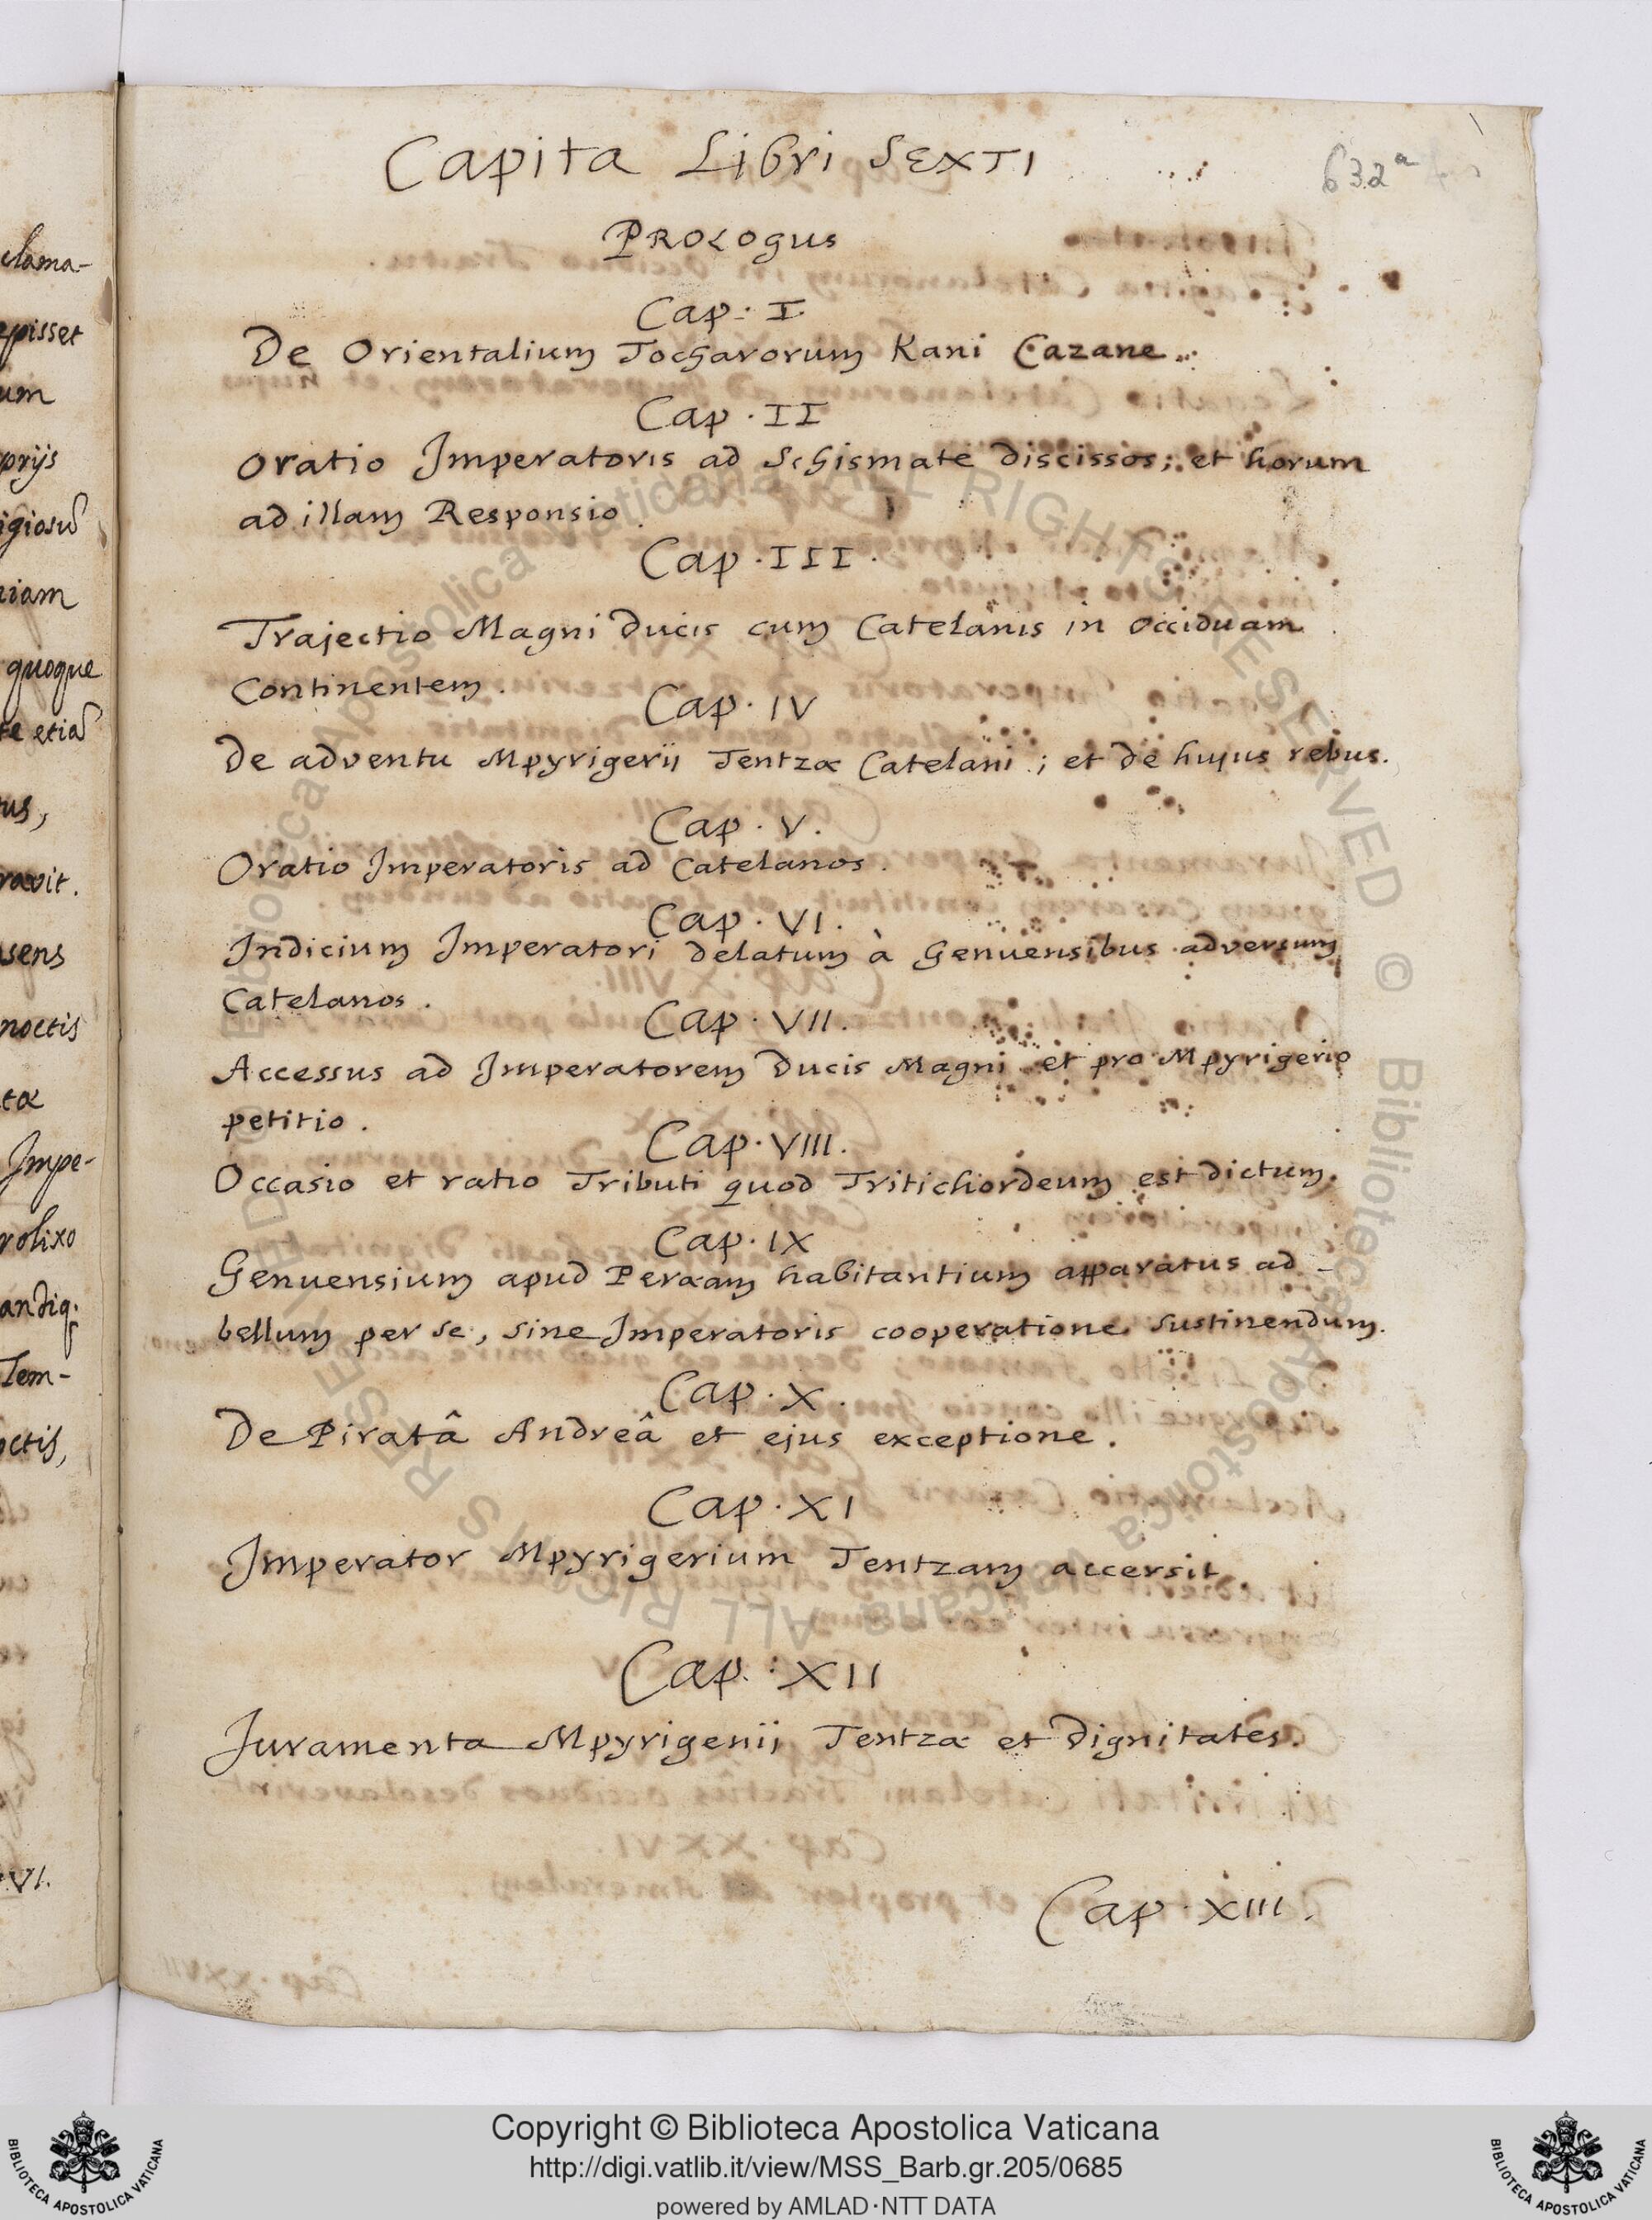 Capita Libri SEXTI
632ᵃ
PROLOGUS
Cap. I.
De Orientalium Tocharorum Kani Cazane.
Cap. II
Oratio Imperatoris ad Schismate discissos; et horum
ad illam Responsio.
Cap. III.
Trajectio Magni Ducis cum Catelanis in occiduam
Continentem.
Cap. IV
De adventu Mpyrigerii Tentzæ Catelani; et de hujus rebus.
Cap. V.
Oratio Imperatoris ad Catelanos.
Cap. VI.
Indicium Imperatori delatum à Genuensibus adversum
Catelanos.
Cap. VII.
Accessus ad Imperatorem Ducis Magni et pro Mpyrigerio
petitio.
Cap. VIII.
Occasio et ratio Tributi quod Tritichordeum est dictum.
Cap. IX
Genuensium apud Peræam habitantium apparatus ad
bellum per se, sine Imperatoris cooperatione sustinendum.
Cap. X.
De Piratâ Andreâ et ejus exceptione.
Cap. XI
Imperator Mpyrigerium Tentzam accersit.
Cap. XII
Juramenta Mpyrigenii Tentzæ et dignitates.
Cap. XIII.
clama-
episset
um
prijs
niam
quoque
tus,
ravit.
sens
noctis
tæ
Impe-
rolixo
Tem-
octis,
VI.
Copyright © Biblioteca Apostolica Vaticana
http://digi.vatlib.it/view/MSS_Barb.gr.205/0685
powered by AMLAD·NTT DATA
BIBLIOTECA APOSTOLICA VATICANA
BIBLIOTECA APOSTOLICA VATICANA